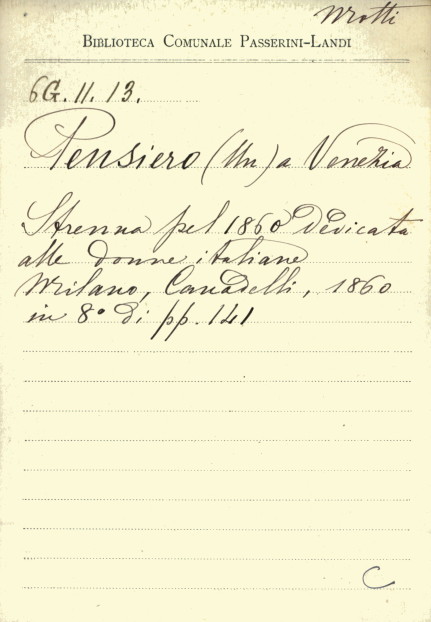 Miotti
BIBLIOTECA COMUNALE PASSERINI-LANDI
6G. II. 13.
Pensiero (Un) a Venezia
Strenna pel 1860 dedicata
alle donne italiane
Milano, Canadelli, 1860
in 8° di pp. 141
C